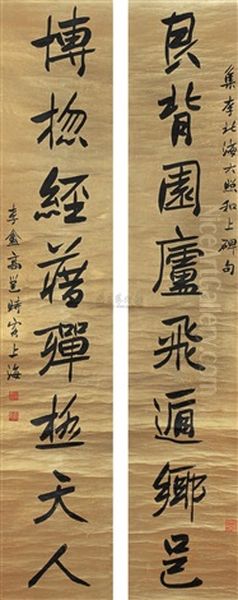 集李北海大照和上碑句
具背園廬飛遁鄉邑
博揔經藉殫極天人
李盦高邕時客上海